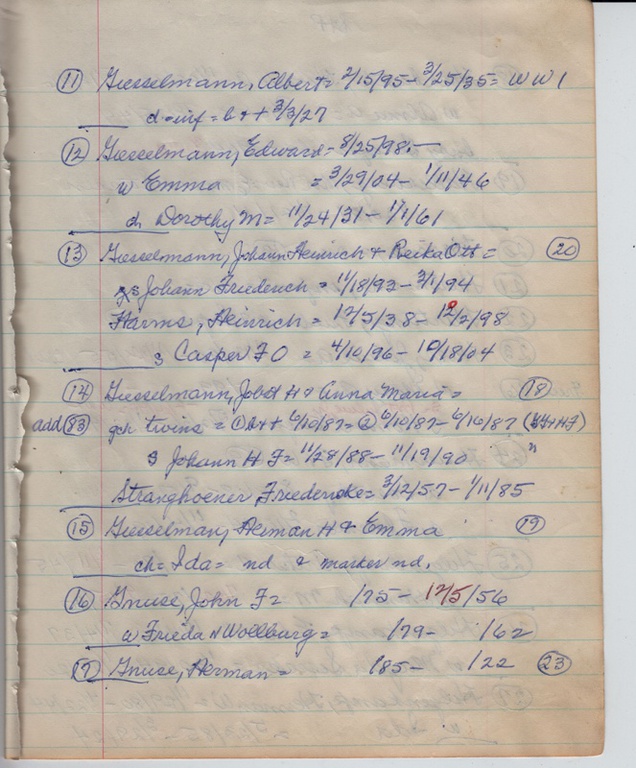 (11) Giesselmann, Albert = 2/15/95 - 3/25/35 = WW 1
d-inf = b + + 3/3/27
(12) Giesselmann, Edward = 8/25/98 -
w Emma = 3/29/04 - 1/11/46
d Dorothy M = 11/24/31 - 1/1/61
(13) Giesselmann, Johann Heinrich + Reika Ott = (20)
s Johann Friederich = 11/18/93 - 3/1/94
Harms, Heinrich = 12/5/38 - 12/2/98
s Casper F O = 4/10/96 - 10/18/04
(14) Giesselmann, Jobst H + Anna Maria = (18)
add (83) gch twins = ① b + + 6/10/87 = ② 6/10/87 - 6/16/87
s Johann H F = 11/28/88 - 11/19/90 "
Stranghoener, Friedericke = 3/12/57 - 1/11/85
(15) Giesselman, Herman H + Emma (19)
ch = Ida = nd & marker nd.
(16) Gnuse, John F = /75 - 12/5/56
w Frieda N Wollburg = /79 - /62
(17) Gnuse, Herman = /85 - /22 (23)